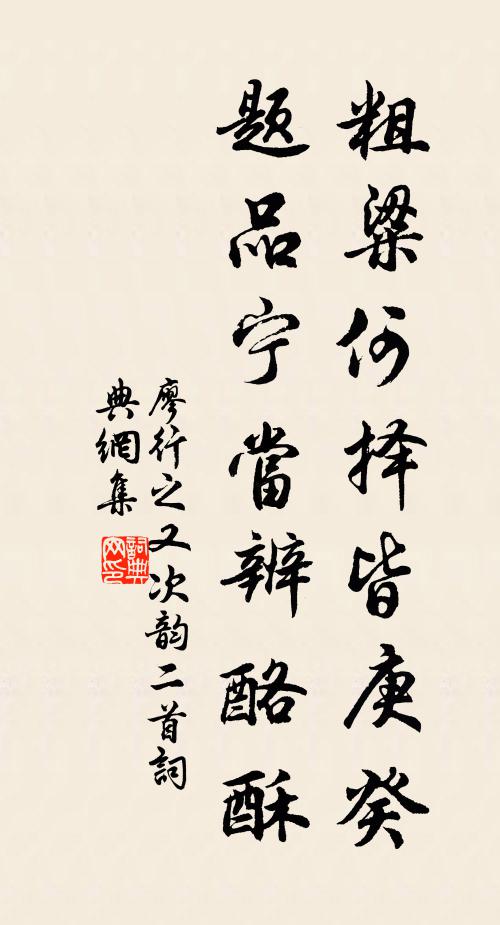 粗粱何择皆庚癸
题品宁當辨酪酥
廖行之又次韵二首詞
典網集
詞典網印